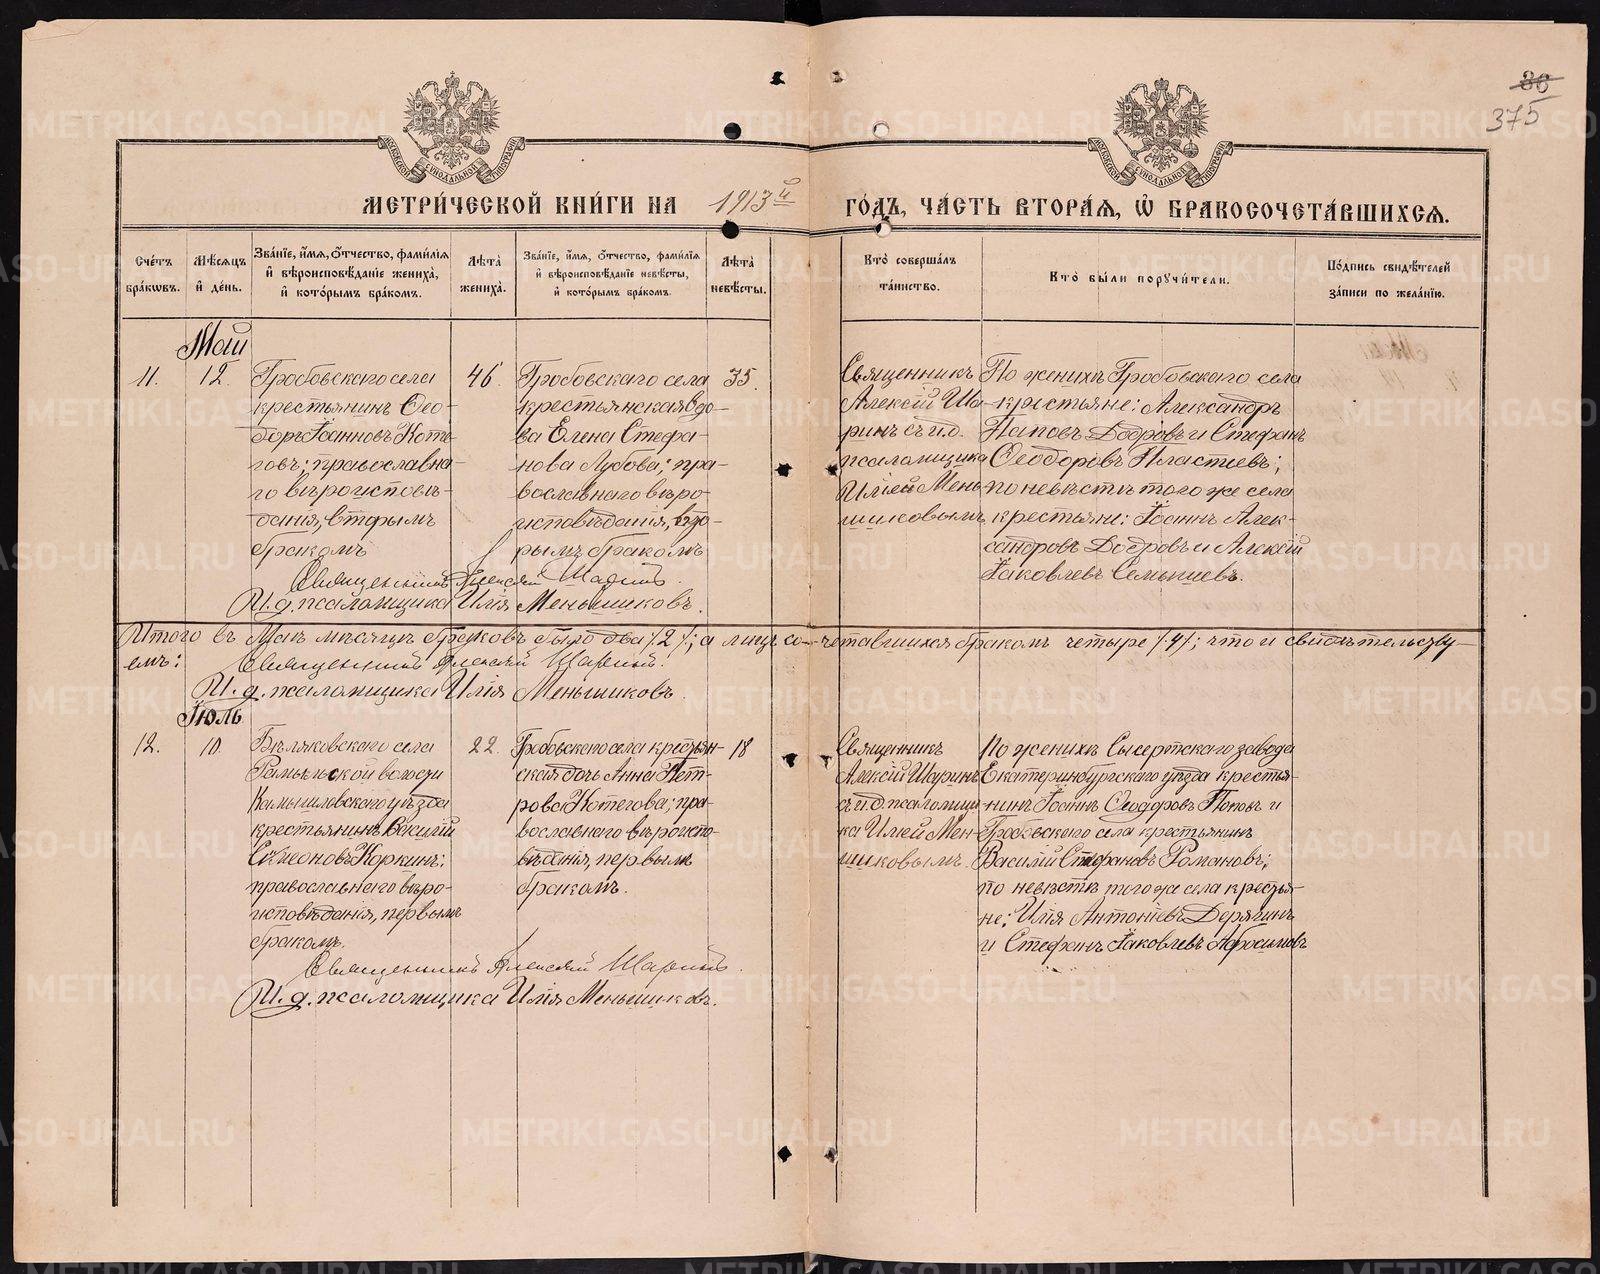 36
375
МОСКОВСКОЙ СѴНОДАЛЬНОЙ ТИПОГРАФІИ
МОСКОВСКОЙ СѴНОДАЛЬНОЙ ТИПОГРАФІИ
МЕТРИ́ЧЕСКОЙ КНИ́ГИ НА 1913й ГО́ДЪ, ЧА́СТЬ ВТОРА́Я, Ѽ БРАКОСОЧЕТА́ВШИХСЯ.
Сче́тъ бра́кѡвъ.
Мѣ́сяцъ и҆ де́нь.
Зва́нїе, и҆́мя, о҆́тчество, фами́лїя
и҆ вѣроисповѣ́данїе жениха̀,
и҆ кото́рымъ бра́комъ.
Лѣта̀ жениха̀.
Зва́нїе, и҆́мя, о҆́тчество, фами́лїя
и҆ вѣроисповѣ́данїе невѣ́сты,
и҆ кото́рымъ бра́комъ.
Лѣта̀ невѣ́сты.
Кто̀ соверша́лъ
та́инство.
Кто̀ бы́ли порꙋчи́тели.
По́дпись свидѣ́телей
за́писи по жела́нїю.
Май
11.
12.
Гробовскаго села
крестьянинъ Ѳео-
доръ Іоанновъ Коте-
говъ; православна-
го вѣроисповѣ-
данія, вторымъ
бракомъ
46.
Гробовскаго села
крестьянская вдо-
ва Елена Стефа-
нова Лубова; пра-
вославнаго вѣро-
исповѣданія, вто-
рымъ бракомъ
35.
Священникъ
Алексій Ша-
ринъ съ и.д.
псаломщика
Иліей Мень-
шиковымъ
По женихѣ Гробовскаго села
крестьяне: Александръ
Паповъ Додровъ и Стефанъ
Ѳеодоровъ Пластеевъ;
по невѣстѣ того же села
крестьяне: Іоаннъ Алек-
сандровъ Додровъ и Алексій
Іаковлевъ Семышевъ.
Священникъ Алексій Шаринъ.
И. д. псаломщика Илія Меньшиковъ.
Итого въ Маѣ мѣсяцѣ браковъ было два /2/; а лицъ со-четавшихся бракомъ четыре /4/; что и свидѣтельству-
емъ: Священникъ Алексій Шаринъ.
И. д. псаломщика Илія Меньшиковъ.
Іюль
12.
10.
Бѣляковскаго села
волости
Камышловскаго уѣзда
крестьянинъ Василій
Симеоновъ Коркинъ;
православнаго вѣро-
исповѣданія, первымъ
бракомъ.
22.
Гробовскаго села крестьян-
ская дочь Анна Пет-
рова Котегова; пра-
вославнаго вѣроиспо-
вѣданія, первымъ
бракомъ.
18
Священникъ
Алексій Шаринъ
съ и.д. псаломщи-
ка Иліей Мень-
шиковымъ.
По женихѣ Сысертскаго завода
Екатеринбургскаго уѣзда крестья-
нинъ Іоаннъ Ѳеодоровъ Поповъ и
Гробовскаго села крестьянинъ
Василій Стефановъ Романовъ;
по невѣстѣ того же села крестья-
не: Илія Антоніевъ Дерягинъ
и Стефанъ Іаковлевъ Абросимовъ
Священникъ Алексій Шаринъ.
И. д. псаломщика Илія Меньшиковъ.
METRIKI.GASO-URAL.RU